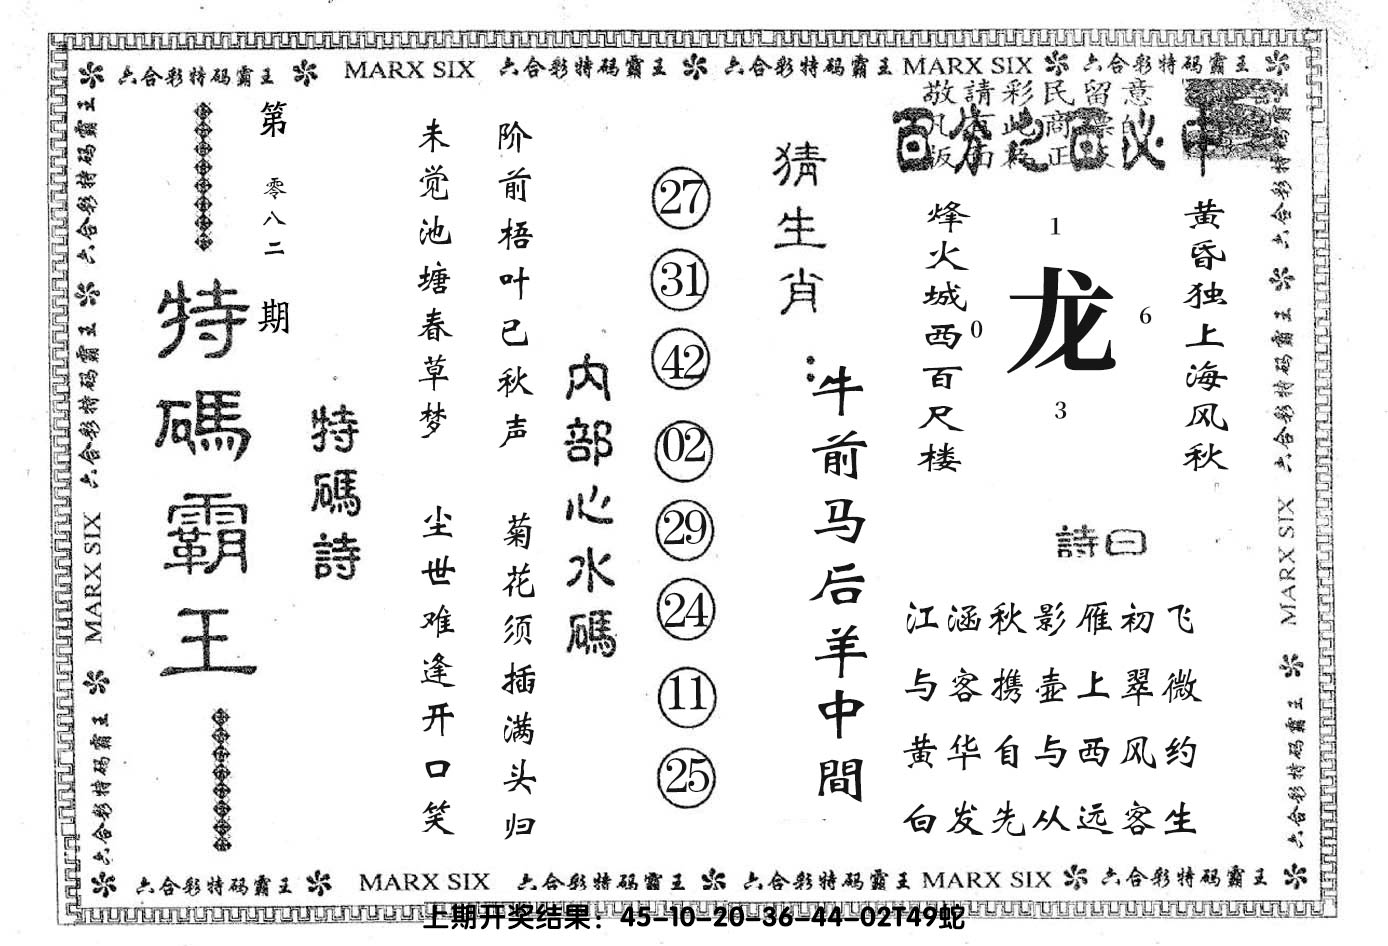 六合彩特码霸王 MARX SIX 六合彩特码霸王 六合彩特码霸王 MARX SIX 六合彩特码霸王
敬請彩民留意
百分之百必中
黄昏独上海风秋
烽火城西百尺楼
1
0
龙
6
3
詩曰
江涵秋影雁初飞
与客携壶上翠微
黄华自与西风约
白发先从远客生
猜生肖：
牛前马后羊中間
27
31
42
02
29
24
11
25
内部心水碼
阶前梧叶已秋声
菊花须插满头归
未觉池塘春草梦
尘世难逢开口笑
特碼詩
第零八二期
特碼霸王
六合彩特码霸王 六合彩特码霸王 MARX SIX 六合彩特码霸王
六合彩特码霸王 六合彩特码霸王 MARX SIX 六合彩特码霸王
六合彩特码霸王 MARX SIX 六合彩特码霸王 六合彩特码霸王 MARX SIX 六合彩特码霸王
上期开奖结果：45-10-20-36-44-02T49蛇